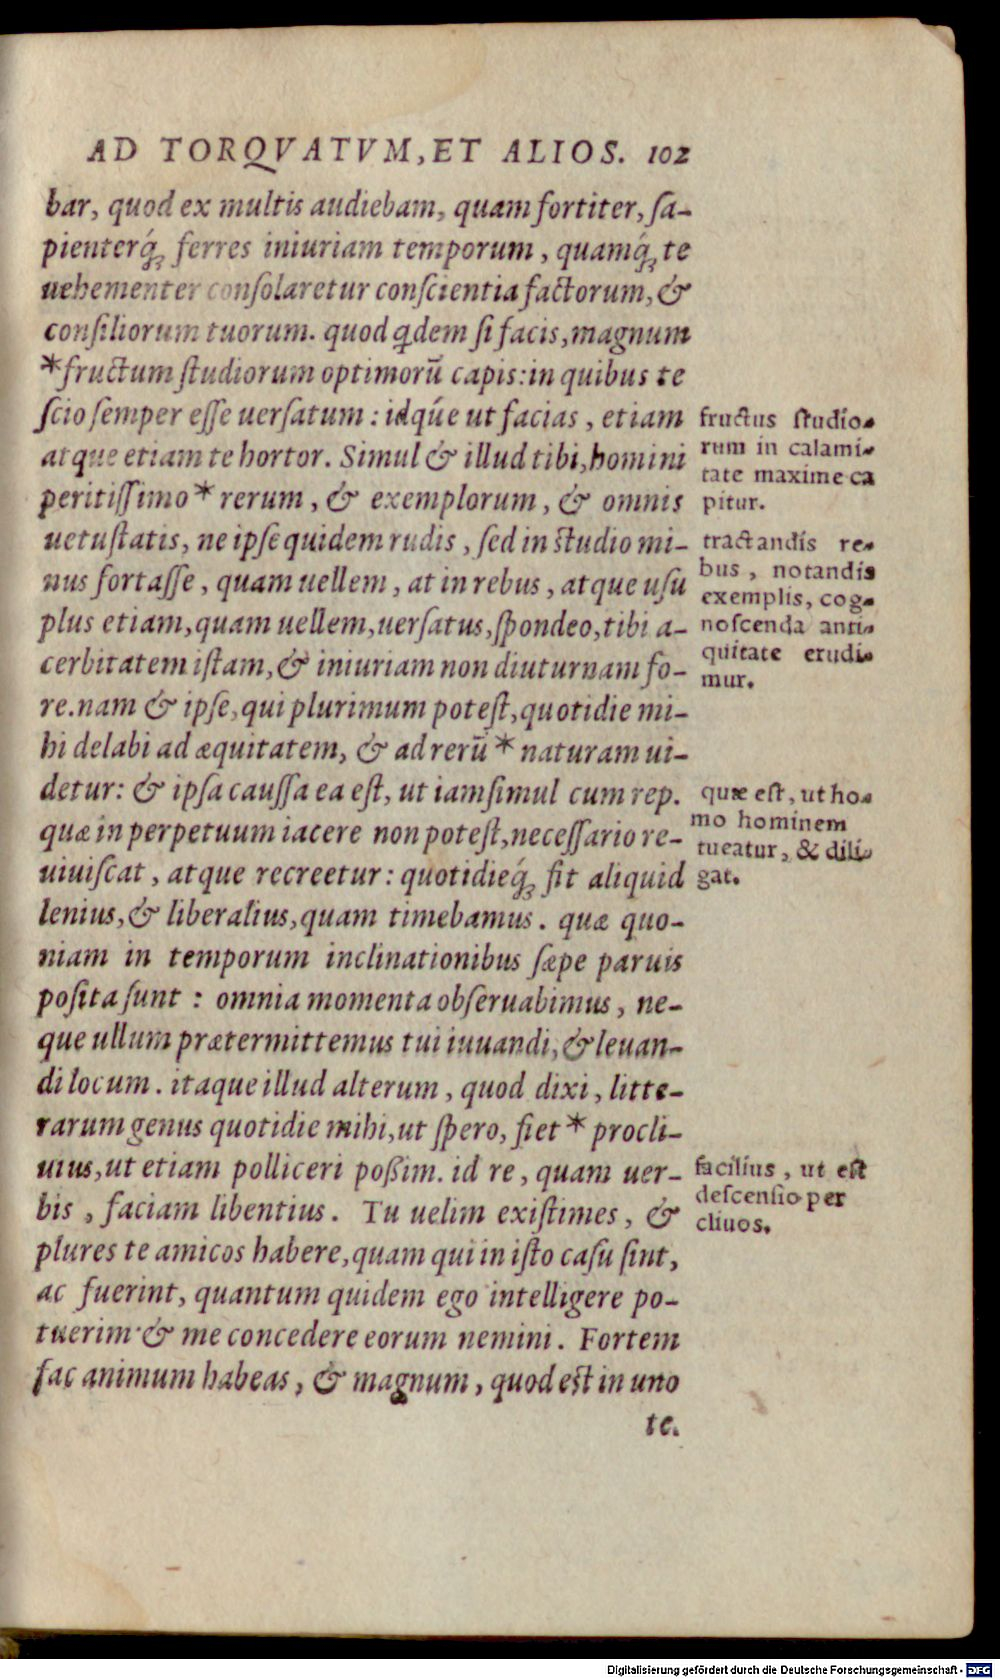 AD TORQVATVM, ET ALIOS. 102
bar, quod ex multis audiebam, quam fortiter, ſa-
pienterq́; ferres iniuriam temporum, quamq́; te
uehementer conſolaretur conſcientia factorum, &
conſiliorum tuorum. quod qdem ſi facis, magnum
*fructum ſtudiorum optimorū capis: in quibus te
ſcio ſemper eſſe uerſatum: idq́ue ut facias, etiam
atque etiam te hortor. Simul & illud tibi, homini
peritiſſimo * rerum, & exemplorum, & omnis
uetuſtatis, ne ipſe quidem rudis, ſed in ſtudio mi-
nus fortaſſe, quam uellem, at in rebus, atque uſu
plus etiam, quam uellem, uerſatus, ſpondeo, tibi a-
cerbitatem iſtam, & iniuriam non diuturnam fo-
re. nam & ipſe, qui plurimum poteſt, quotidie mi-
hi delabi ad æquitatem, & ad rerū * naturam ui-
detur: & ipſa cauſſa ea eſt, ut iam ſimul cum rep.
quæ in perpetuum iacere non poteſt, neceſſario re-
uiuiſcat, atque recreetur: quotidieq́; fit aliquid
lenius, & liberalius, quam timebamus. quæ quo-
niam in temporum inclinationibus ſæpe paruis
poſita ſunt: omnia momenta obſeruabimus, ne-
que ullum prætermittemus tui iuuandi, & leuan-
di locum. itaque illud alterum, quod dixi, litte-
rarum genus quotidie mihi, ut ſpero, fiet * procli-
uius, ut etiam polliceri poßim. id re, quam uer-
bis, faciam libentius. Tu uelim exiſtimes, &
plures te amicos habere, quam qui in iſto caſu ſint,
ac fuerint, quantum quidem ego intelligere po-
tuerim· & me concedere eorum nemini. Fortem
fac animum habeas, & magnum, quod eſt in uno
te.
fructus ſtudio-
rum in calami-
tate maxime ca
pitur.
tractandis re-
bus, notandis
exemplis, cog-
noſcenda anti-
quitate erudi-
mur.
quæ eſt, ut ho-
mo hominem
tueatur, & dili-
gat.
facilius, ut eſt
deſcenſio per
cliuos.
Digitalisierung gefördert durch die Deutsche Forschungsgemeinschaft - DFG